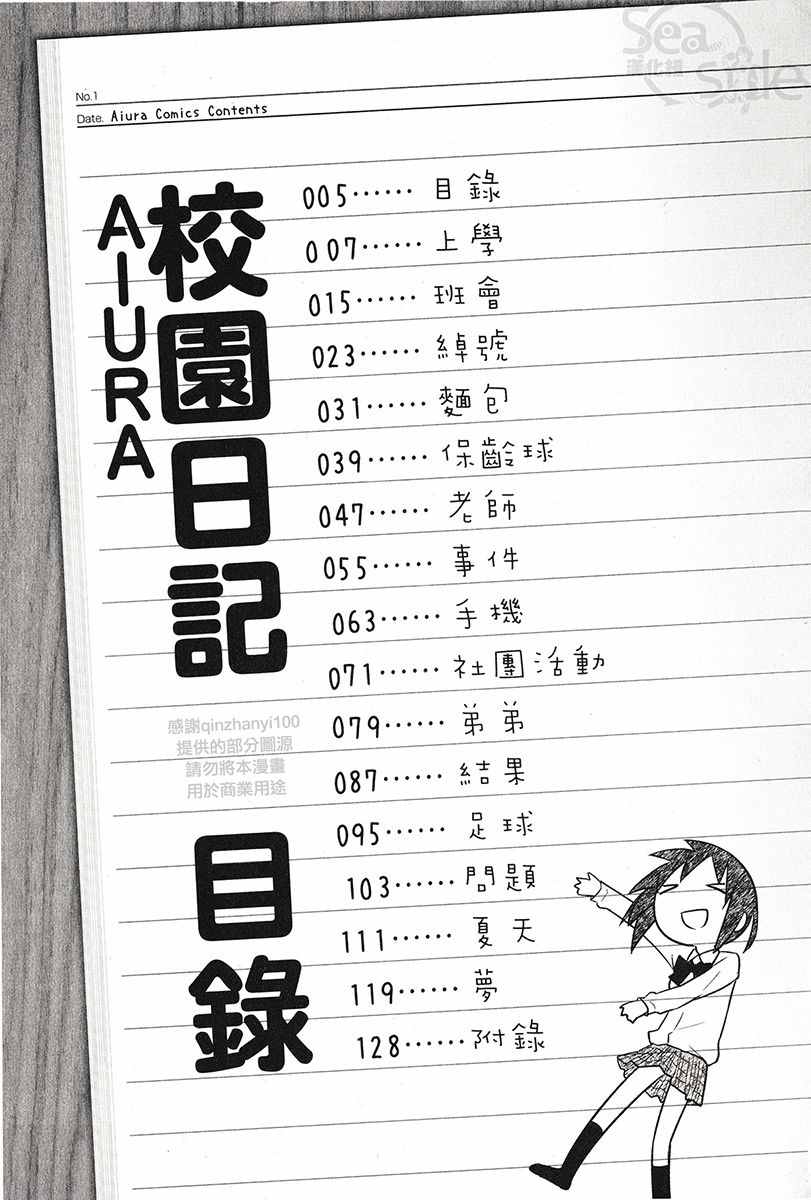 Sea side
漢化組
No.1
Date. Aiura Comics Contents
校園日記
AIURA
目錄
005⋯⋯目錄
007⋯⋯上學
015⋯⋯班會
023⋯⋯綽號
031⋯⋯麵包
039⋯⋯保齡球
047⋯⋯老師
055⋯⋯事件
063⋯⋯手機
071⋯⋯社團活動
079⋯⋯弟弟
087⋯⋯結果
095⋯⋯足球
103⋯⋯問題
111⋯⋯夏天
119⋯⋯夢
128⋯⋯附錄
感謝qinzhanyi100
提供的部分圖源
請勿將本漫畫
用於商業用途